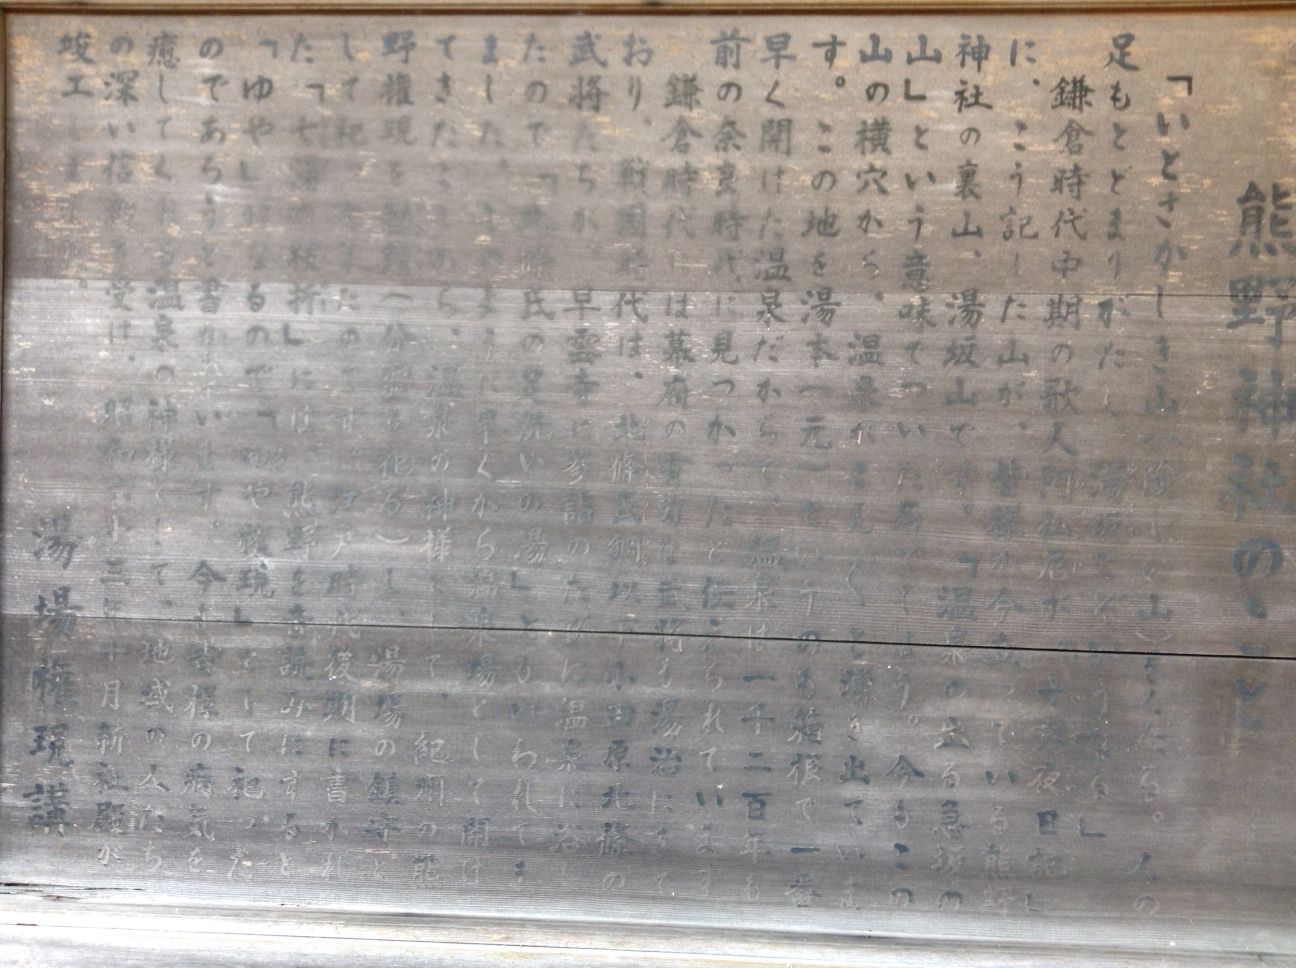 熊野神社のこと
「いとさかしき山(険しい山)をくだる。人の
足もとどまりがたし 湯坂とぞいうなる」
鎌倉時代中期の歌人阿仏尼が「十六夜日記」
に、こう記した山が、皆様が今立っている熊野
神社の裏山、湯坂山です。「温泉の出る急坂の
山」という意味でついた名でしょう。今もこの
山の横穴から、温泉がこんこんと湧き出ていま
す。この地を湯本(元)というのも箱根で一番
早く開けた温泉だからで、温泉は一千二百年も
前の奈良時代に見つかったと伝えられています
鎌倉時代には幕府の有力な武将も湯治にきて
おり、戦国時代は、北條氏綱以下小田原北條の
武将たちが、早雲寺に参詣のたびに温泉に浴し
たので「北條氏の足洗いの湯」ともいわれてき
ました。このように早くから温泉場として開け
てきたことから、温泉の神様として、紀州の熊
野権現を勧請(分霊を祀る)し、湯場の鎮守と
して祀ってきたのです。江戸時代後期に書かれ
た「七湯の枝折」には、熊野を音読みにすると
「ゆや」になるので「ゆや権現」として祀った
のであろうと書かれています。今も皆様の病気を
癒してくれる温泉の神様として、地域の人たち
の深い信仰を受け、昭和六十三年十月新社殿が
竣工しました。
湯場権現講